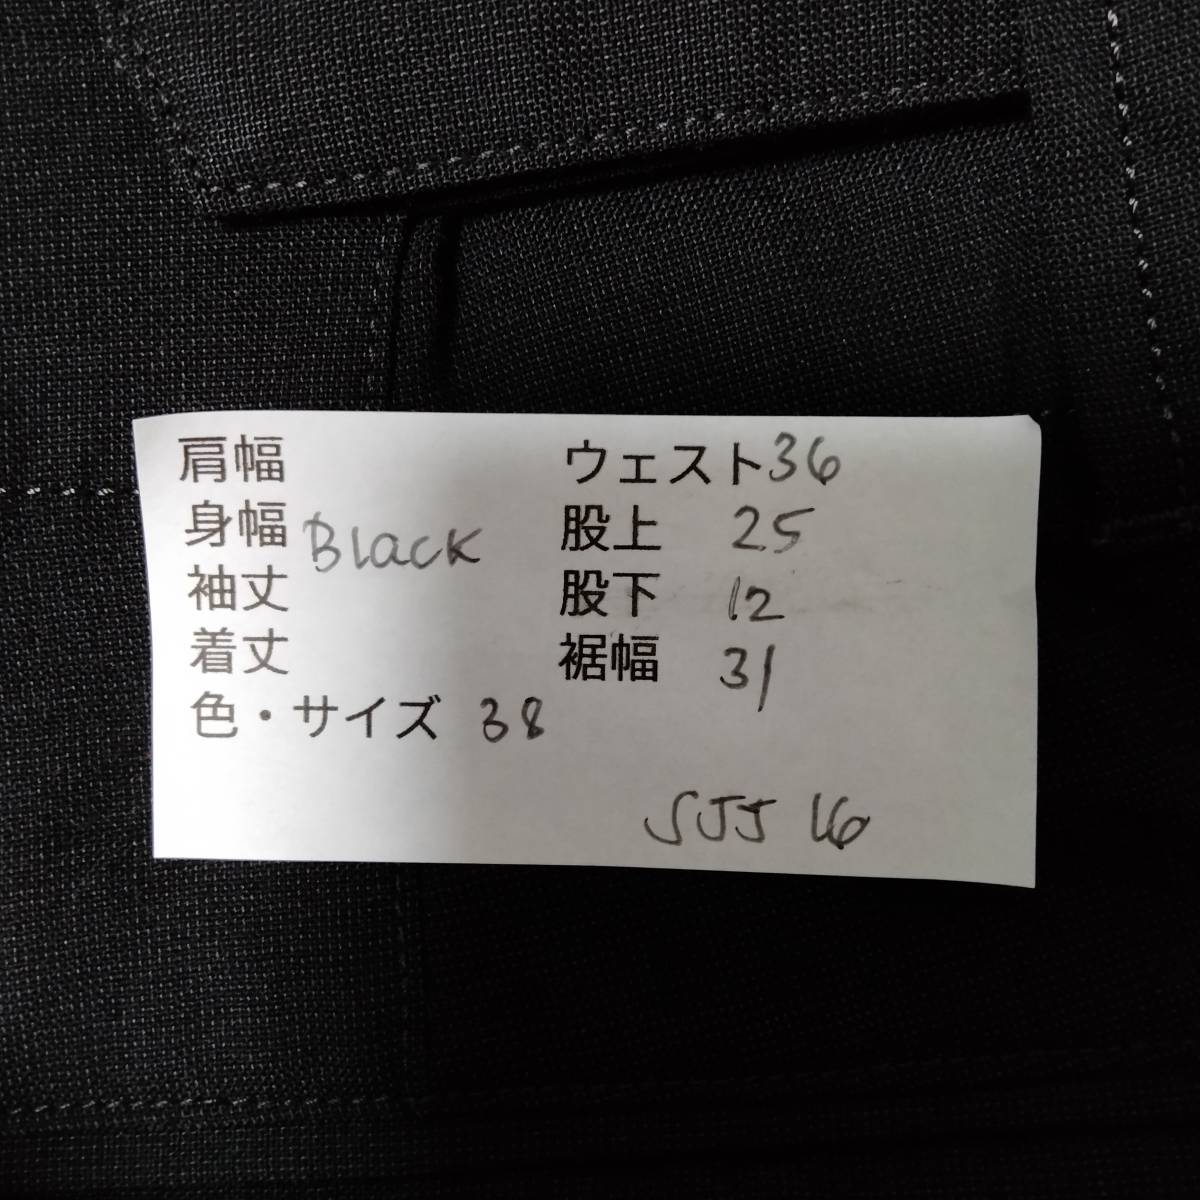 肩幅
身幅 Black
袖丈
着丈
色・サイズ 38
ウェスト 36
股上 25
股下 12
裾幅 31
SJJ 16